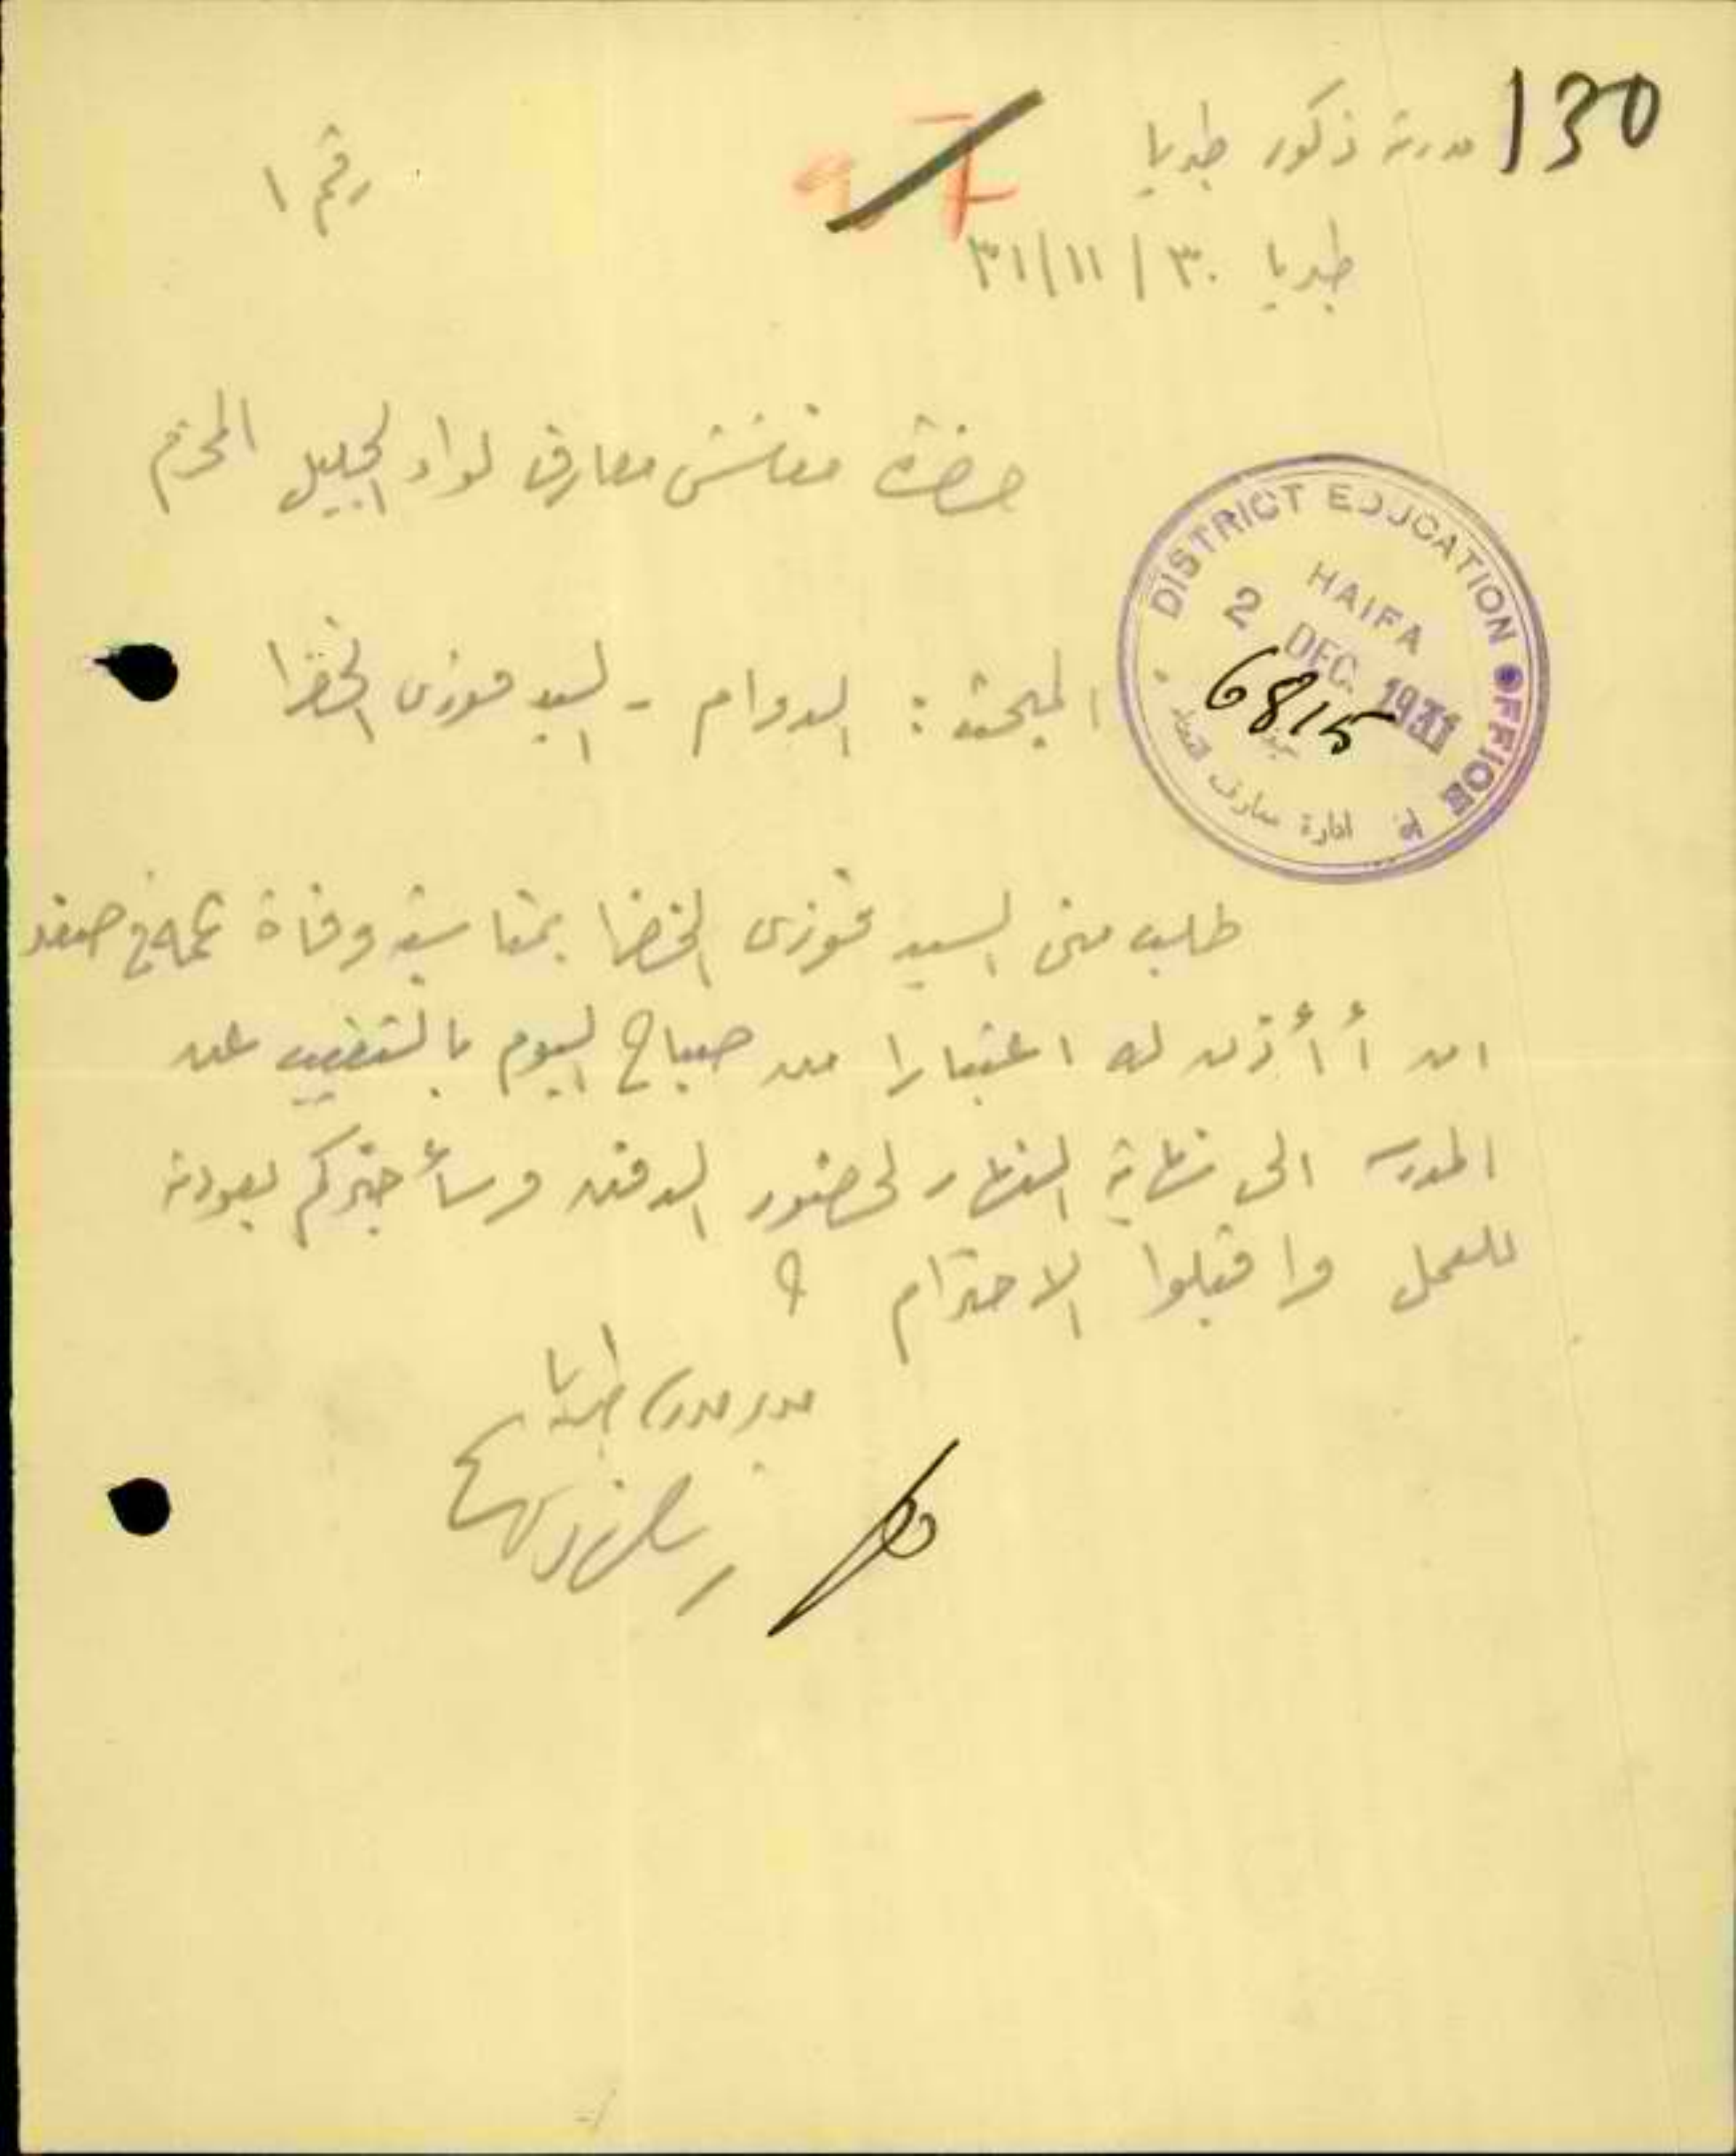 130
مدرسة ذكور طبريا
رقم ١
طبريا ٣٠/١١/٣١
حضرة مفتش معارف لواء الجليل المحترم
DISTRICT EDUCATION OFFICE
HAIFA
2 DEC. 1931
6815
ادارة معارف
المبحث : الدوام - السيد فوزى الخضرا
طلب منى السيد فوزى الخضرا بمناسبة وفاة عمه فى صفد
ان أأذن له اعتبارا من صباح اليوم بالتغيب عن
المدرسة الى نهاية النهار لحضور الدفن وسأخبركم بعودته
للعمل واقبلوا الاحترام
مدير مدرسة طبريا